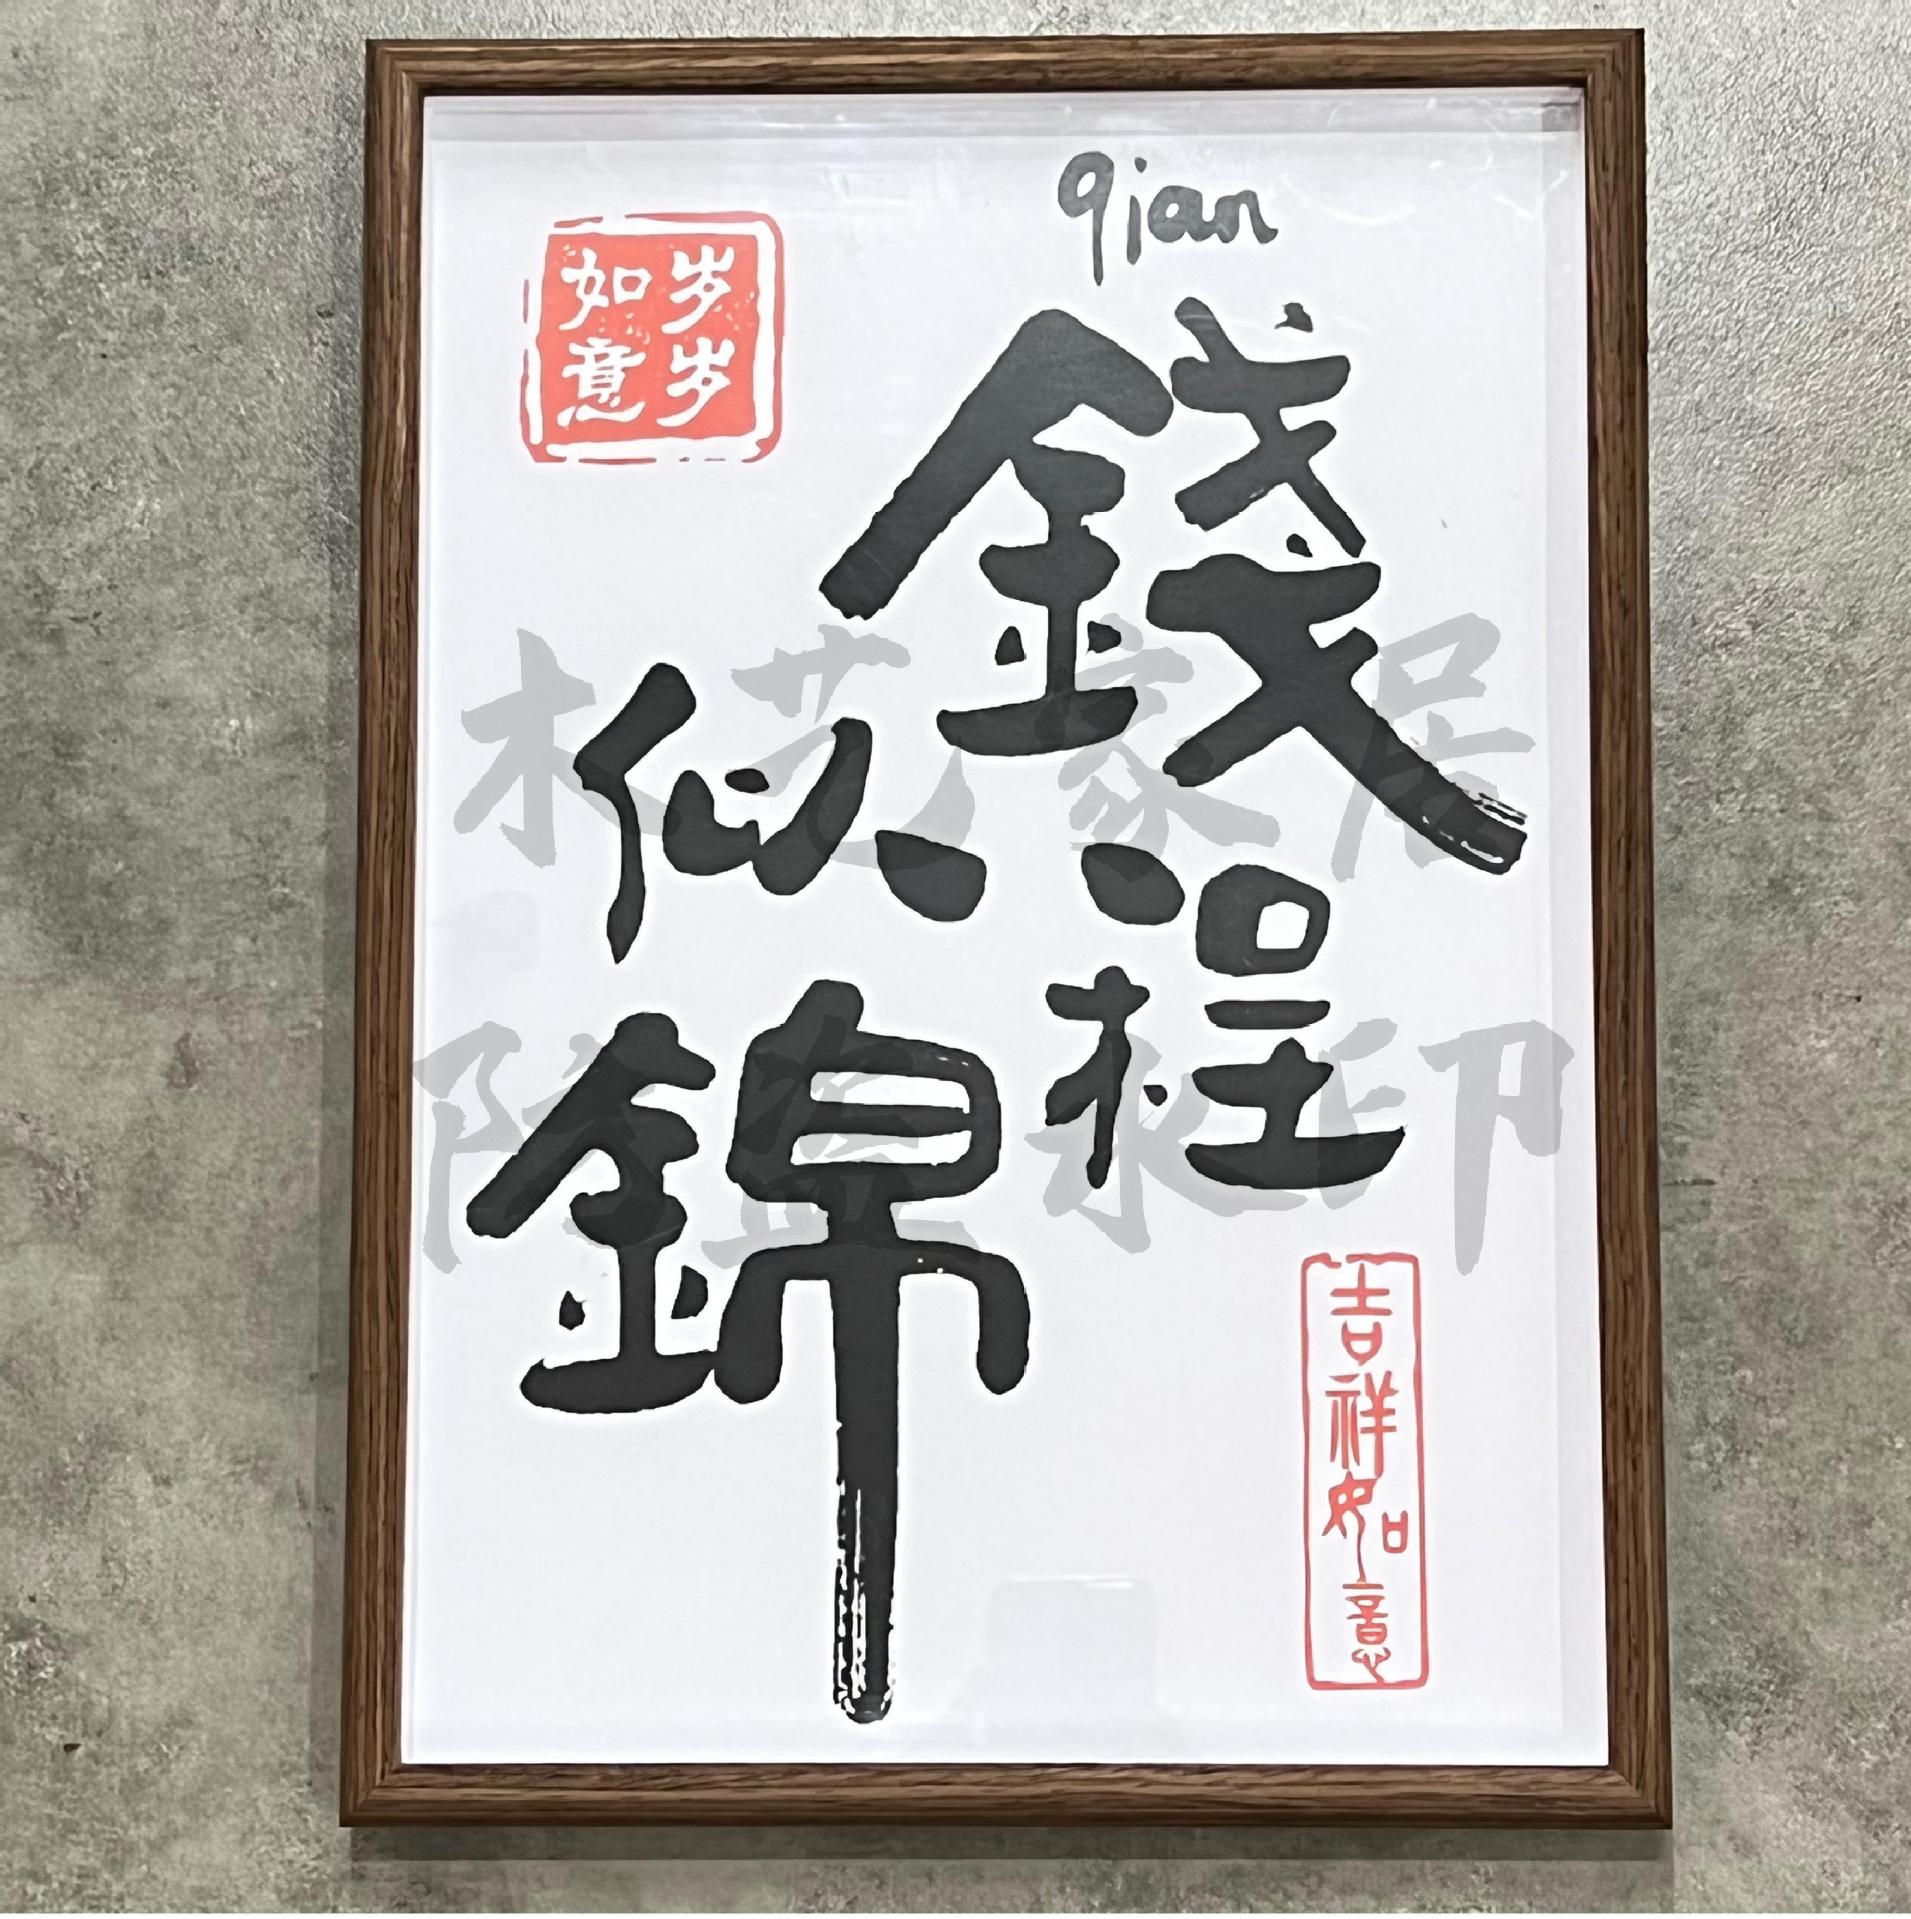 qian
錢程
似錦
岁岁
如意
吉祥如意
木艺家居
防盗水印